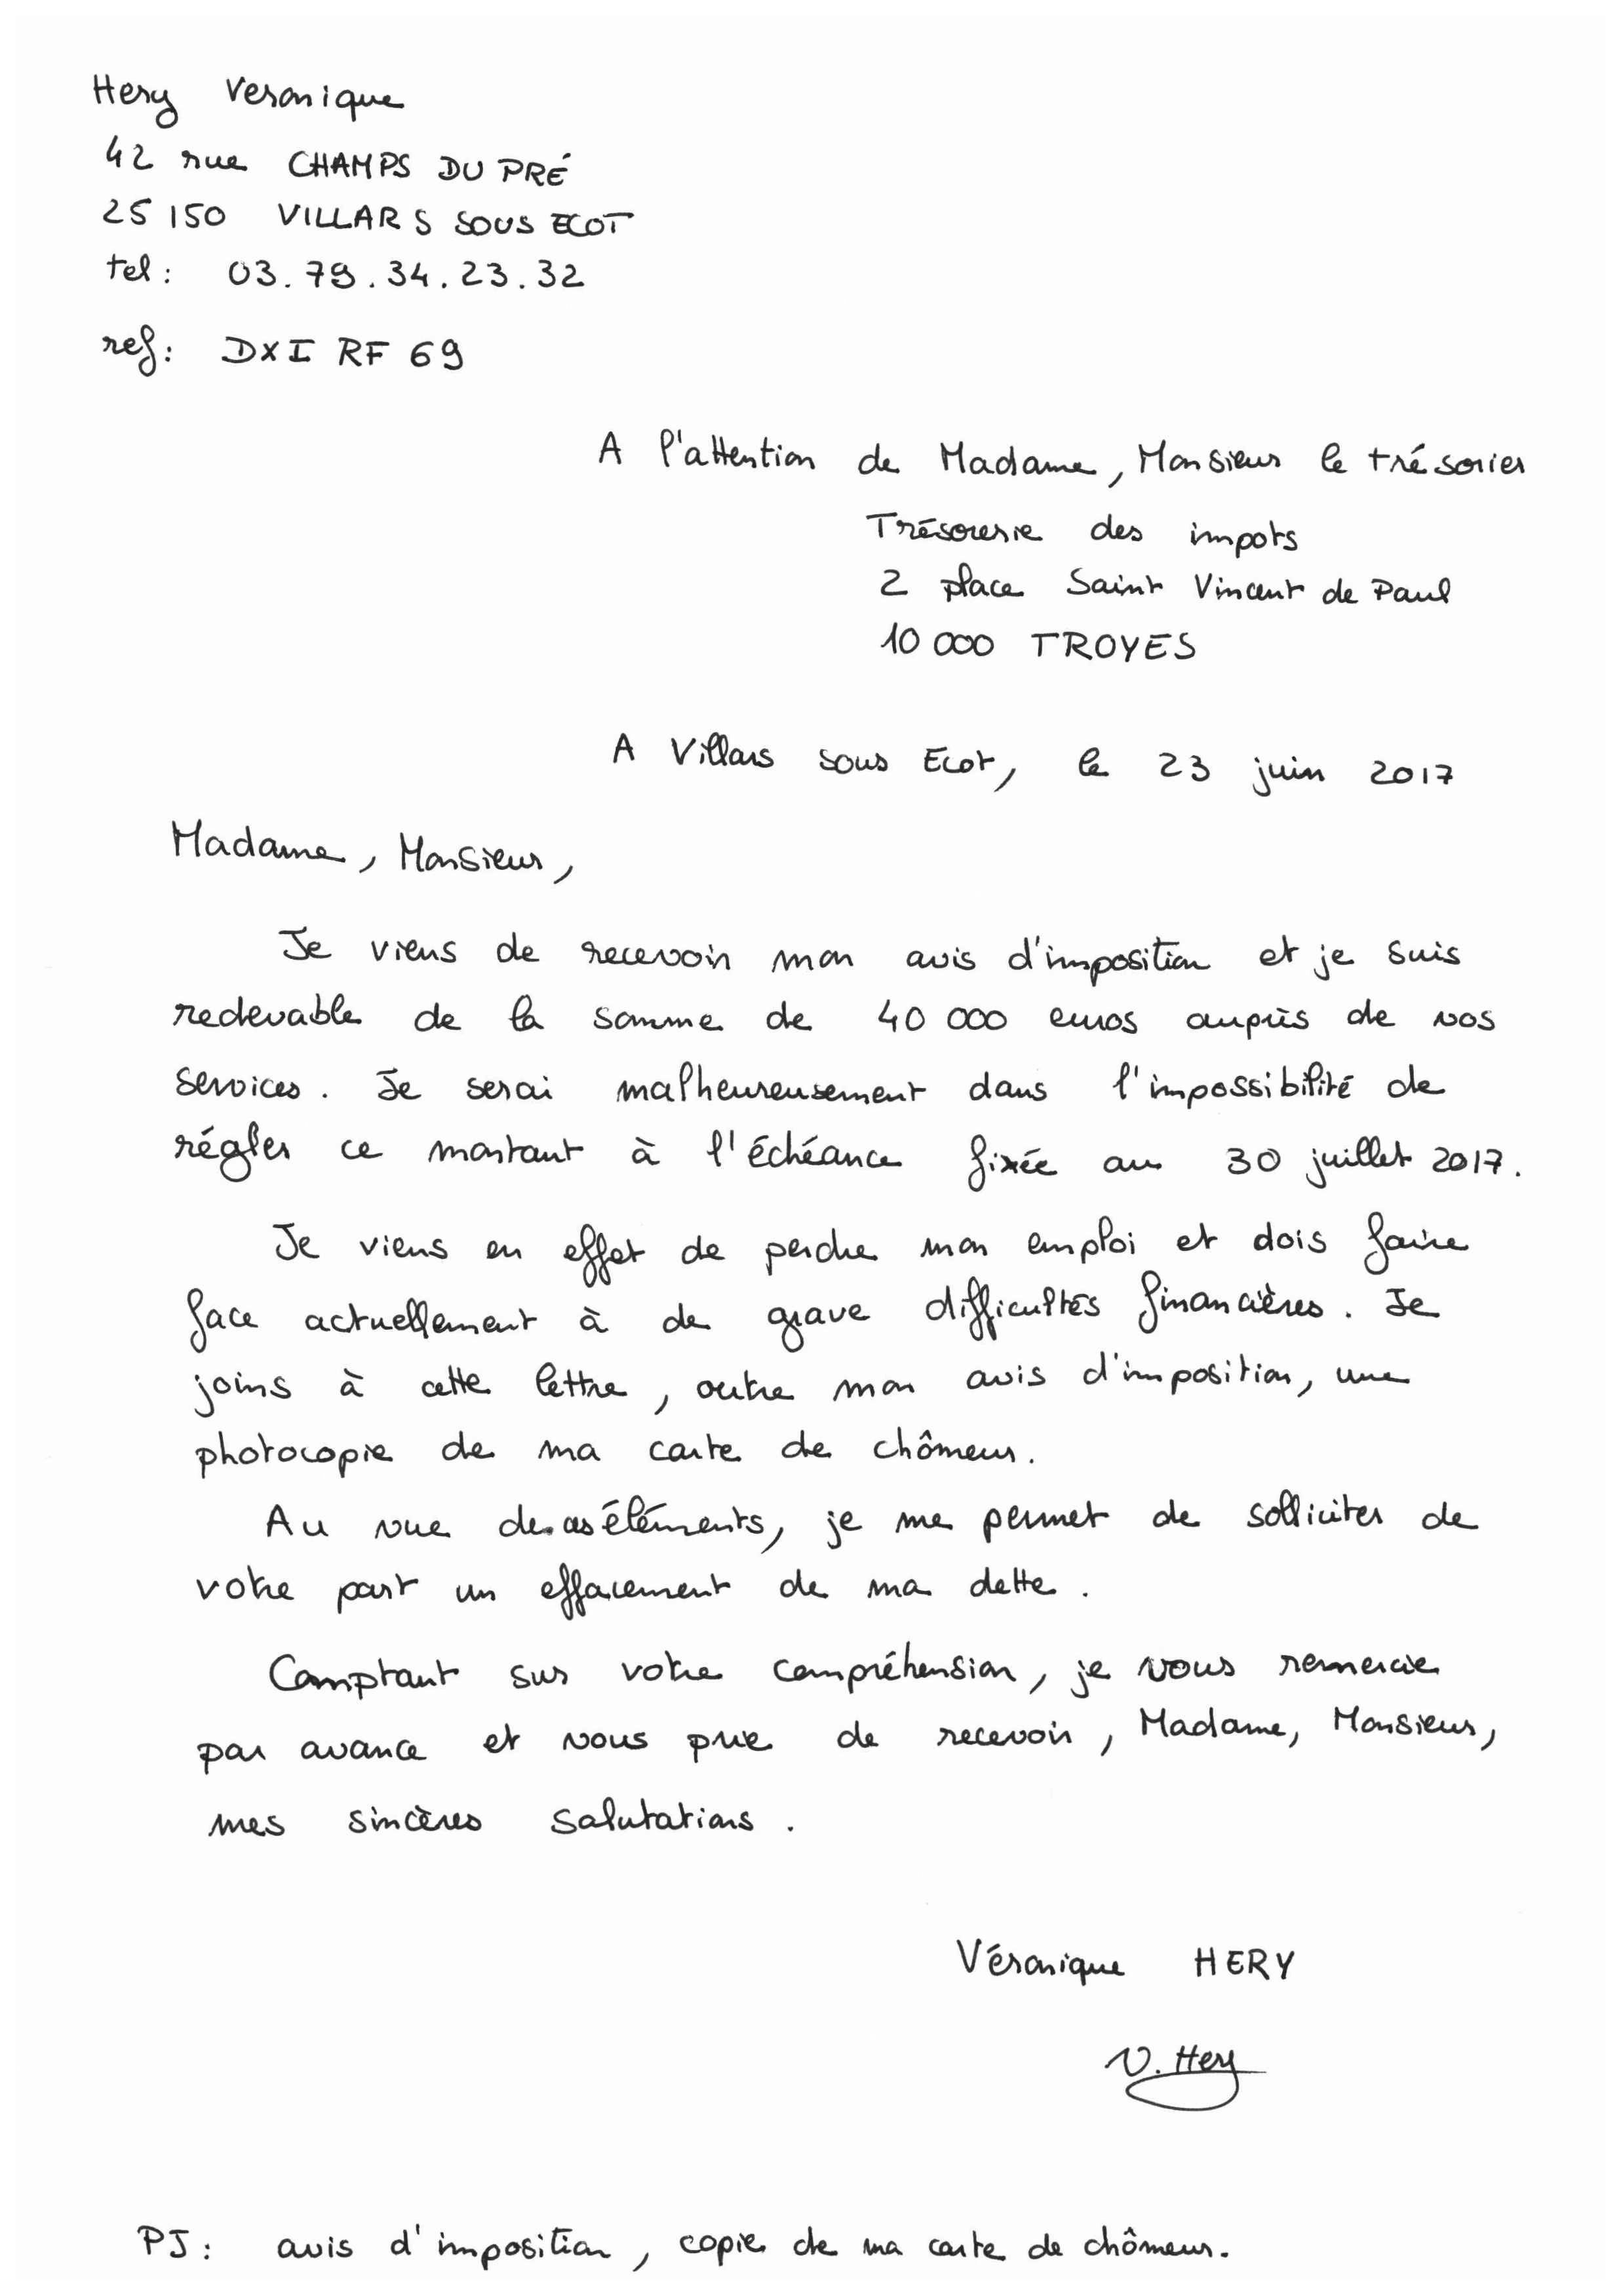 Hery Veronique
42 rue CHAMPS DU PRÉ
25 150 VILLARS SOUS ECOT
tel : 03.79.34.23.32
ref : DXI RF 69
A l'attention de Madame, Monsieur le trésorier
Trésorerie des impots
2 place Saint Vincent de Paul
10 000 TROYES
A Villars sous Ecot, le 23 juin 2017
Madame, Monsieur,
Je viens de recevoir mon avis d'imposition et je suis
redevable de la somme de 40 000 euros auprès de vos
services. Je serai malheureusement dans l'impossibilité de
régler ce montant à l'échéance fixée au 30 juillet 2017.
Je viens en effet de perdre mon emploi et dois faire
face actuellement à de grave difficultés financières. Je
joins à cette lettre, outre mon avis d'imposition, une
photocopie de ma carte de chômeur.
Au vue de ces éléments, je me permet de solliciter de
votre part un effacement de ma dette.
Comptant sur votre compréhension, je vous remercie
par avance et vous prie de recevoir, Madame, Monsieur,
mes sincères salutations.
Véronique HERY
V. Hery
PJ : avis d'imposition, copie de ma carte de chômeur.